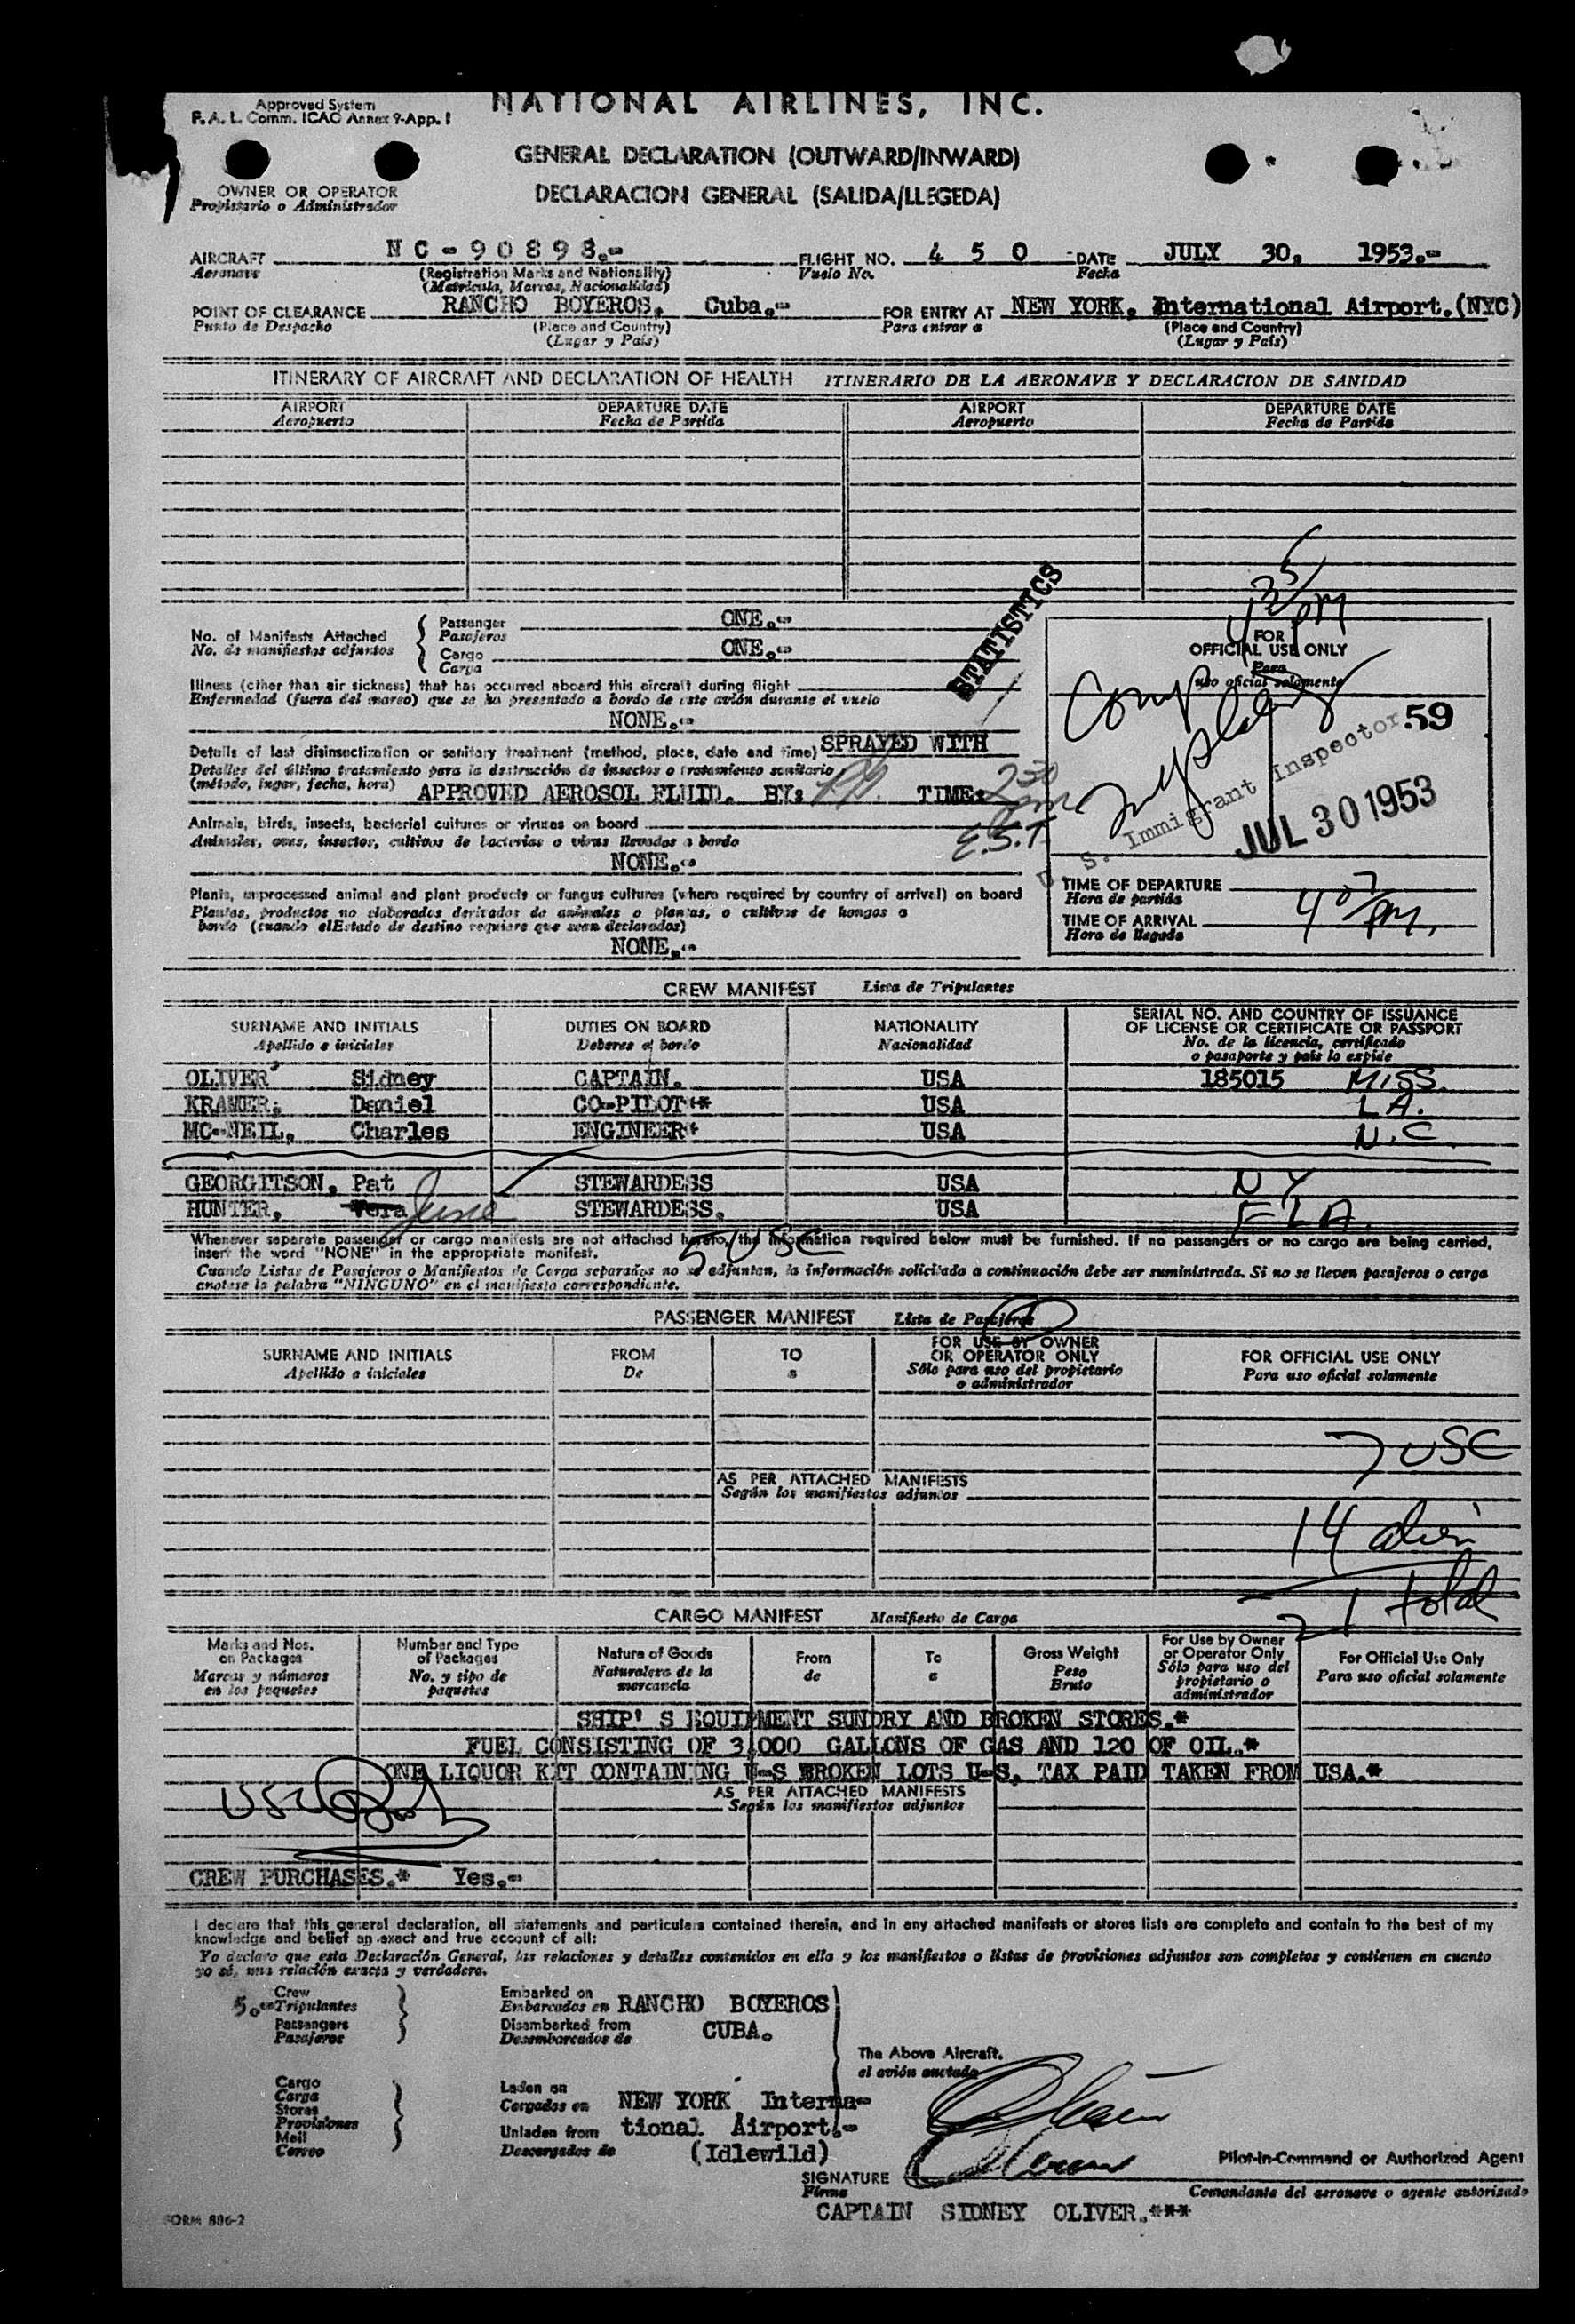 Approved System
F. A. L. Comm. ICAO Annex 9-App. I
NATIONAL AIRLINES, INC.
GENERAL DECLARATION (OUTWARD/INWARD)
DECLARACION GENERAL (SALIDA/LLEGEDA)
OWNER OR OPERATOR
Propietario o Administrador
AIRCRAFT NC-90898.- FLIGHT NO. 450 DATE JULY 30, 1953.-
Aeronave (Registration Marks and Nationality) Vuelo No. Fecha
(Matricula, Marcas, Nacionalidad)
POINT OF CLEARANCE RANCHO BOYEROS, Cuba.- FOR ENTRY AT NEW YORK, International Airport.(NYC)
Punto de Despacho (Place and Country) Para entrar a (Place and Country)
(Lugar y País) (Lugar y País)
ITINERARY OF AIRCRAFT AND DECLARATION OF HEALTH ITINERARIO DE LA AERONAVE Y DECLARACION DE SANIDAD
AIRPORT DEPARTURE DATE AIRPORT DEPARTURE DATE
Aeropuerto Fecha de Partida Aeropuerto Fecha de Partida
STATISTICS
4 35 PM
No. of Manifests Attached Passenger ONE.-
No. de manifiestos adjuntos Pasajeros
Cargo ONE.-
Carga
FOR
OFFICIAL USE ONLY
Para
uso oficial solamente
Illness (other than air sickness) that has occurred aboard this aircraft during flight
Enfermedad (fuera del mareo) que se ha presentado a bordo de este avión durante el vuelo
NONE.-
Details of last disinsectization or sanitary treatment (method, place, date and time) SPRAYED WITH
Detalles del último tratamiento para la destrucción de insectos o tratamiento sanitario
(método, lugar, fecha, hora) APPROVED AEROSOL FLUID. BY: TIME: 2 30 pm
E.S.T.
Comp
59
U. S. Immigrant Inspector
JUL 30 1953
Animals, birds, insects, bacterial cultures or viruses on board
Animales, aves, insectos, cultivos de bacterias o virus llevados a bordo
NONE.-
Plants, unprocessed animal and plant products or fungus cultures (where required by country of arrival) on board
Plantas, productos no elaborados derivados de animales o plantas, o cultivos de hongos a
bordo (cuando elEstado de destino requiere que sean declarados)
NONE.-
TIME OF DEPARTURE
Hora de partida
TIME OF ARRIVAL 4 07 PM.
Hora de llegada
CREW MANIFEST Lista de Tripulantes
SURNAME AND INITIALS DUTIES ON BOARD NATIONALITY SERIAL NO. AND COUNTRY OF ISSUANCE
OF LICENSE OR CERTIFICATE OR PASSPORT
Apellido e iniciales Deberes a bordo Nacionalidad No. de la licencia, certificado
o pasaporte y país lo expide
OLIVER, Sidney CAPTAIN. USA 185015 MISS.
KRAMER; Daniel CO-PILOT** USA LA.
MC-NEIL, Charles ENGINEER* USA N.C.
GEORGITSON, Pat STEWARDESS USA NY
HUNTER, Vera June STEWARDESS. USA FLA.
5 USC
Whenever separate passenger or cargo manifests are not attached hereto, the information required below must be furnished. If no passengers or no cargo are being carried,
insert the word "NONE" in the appropriate manifest.
Cuando Listas de Pasajeros o Manifiestos de Carga separados no se adjuntan, la información solicitada a continuación debe ser suministrada. Si no se lleven pasajeros o carga
anotese la palabra "NINGUNO" en el manifiesto correspondiente.
PASSENGER MANIFEST Lista de Pasajeros
SURNAME AND INITIALS FROM TO FOR USE BY OWNER
OR OPERATOR ONLY FOR OFFICIAL USE ONLY
Apellido e iniciales De a Sólo para uso del propietario
o administrador Para uso oficial solamente
7 USC
AS PER ATTACHED MANIFESTS
Según los manifiestos adjuntos
14 alien
21 total
CARGO MANIFEST Manifiesto de Carga
Marks and Nos.
on Packages
Marcas y números
en los paquetes
Number and Type
of Packages
No. y tipo de
paquetes
Nature of Goods
Naturaleza de la
mercancia
From
de
To
a
Gross Weight
Peso
Bruto
For Use by Owner
or Operator Only
Sólo para uso del
propietario o
administrador
For Official Use Only
Para uso oficial solamente
SHIP' S EQUIPMENT SUNDRY AND BROKEN STORES.*
FUEL CONSISTING OF 3,000 GALLONS OF GAS AND 120 OF OIL.*
ONE LIQUOR KIT CONTAINING U-S BROKEN LOTS U-S, TAX PAID TAKEN FROM USA.*
AS PER ATTACHED MANIFESTS
Según los manifiestos adjuntos
CREW PURCHASES.* Yes.-
I declare that this general declaration, all statements and particulars contained therein, and in any attached manifests or stores lists are complete and contain to the best of my
knowledge and belief an exact and true account of all:
Yo declaro que esta Declaración General, las relaciones y detalles contenidos en ella y los manifiestos o listas de provisiones adjuntos son completos y contienen en cuanto
yo sé, una relación exacta y verdadera.
5.- Crew
Tripulantes
Passengers
Pasajeros
Embarked on
Embarcados en RANCHO BOYEROS
Disembarked from CUBA.
Desembarcados de
The Above Aircraft.
el avión anotado
Cargo
Carga
Stores
Provisiones
Mail
Correo
Laden on
Cargados en NEW YORK Interna-
Unladen from tional Airport.-
Descargados de (Idlewild)
Pilot-in-Command or Authorized Agent
SIGNATURE
Firma Comandante del aeronave o agente autorizado
CAPTAIN SIDNEY OLIVER.***
FORM 886-2